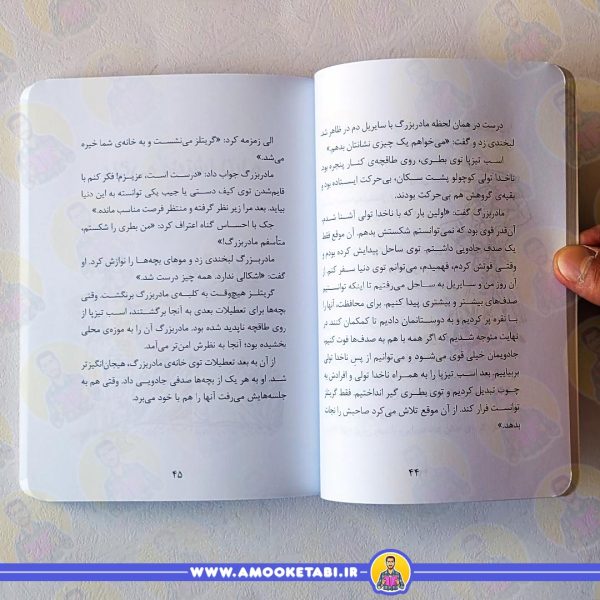 درست در همان لحظه مادربزرگ با سایریل دم در ظاهر شد.
لبخندی زد و گفت: «می‌خواهم یک چیزی نشانتان بدهم.»
اسب تیزپا توی بطری، روی طاقچه‌ی کنار پنجره بود.
ناخدا تولی کوچولو پشت سکان، بی‌حرکت ایستاده بود و
بقیه‌ی گروهش هم بی‌حرکت بودند.
مادربزرگ گفت: «اولین بار که با ناخدا تولی آشنا شدم،
آن‌قدر قوی بود که نمی‌توانستم شکستش بدهم. آن موقع فقط
یک صدف جادویی داشتم. توی ساحل پیدایش کرده بودم و
وقتی فوتش کردم، فهمیدم، می‌توانم توی دنیا سفر کنم. از
آن روز من و سایریل به ساحل می‌رفتیم تا اینکه توانستیم
صدف‌های بیشتر و بیشتری پیدا کنیم. برای محافظت، آنها را
با نقره پر کردیم و به دوستانمان دادیم تا کمکمان کنند.
نهایت متوجه شدیم که اگر همه با هم به صدف‌ها فوت کنیم،
جادویمان خیلی قوی می‌شود و می‌توانیم از پس ناخدا تولی
بربیاییم. بعد اسب تیزپا را به همراه ناخدا تولی و افرادش به
چوب تبدیل کردیم و توی بطری گیر انداختیم. فقط گریتلز
توانست فرار کند. از آن موقع تلاش می‌کرد صاحبش را نجات
بدهد.»
۴۴
الی زمزمه کرد: «گریتلز می‌نشست و به خانه‌ی شما خیره
می‌شد.»
مادربزرگ جواب داد: «درست است، عزیزم! فکر کنم با
قایم‌شدن توی کیف دستی یا جیب یکی توانسته به این دنیا
بیاید. بعد مرا زیر نظر گرفته و منتظر فرصت مناسب مانده.»
جک با احساس گناه اعتراف کرد: «من بطری را شکستم،
متأسفم مادربزرگ!»
مادربزرگ لبخندی زد و موهای بچه‌ها را نوازش کرد. او
گفت: «اشکالی ندارد. همه چیز درست شد.»
گریتلز هیچ‌وقت به کلبه‌ی مادربزرگ برنگشت. وقتی
بچه‌ها برای تعطیلات بعدی به آنجا برگشتند، اسب تیزپا از
روی طاقچه ناپدید شده بود. مادربزرگ آن را به موزه‌ی محلی
بخشیده بود؛ آنجا به نظرش امن‌تر می‌آمد.
از آن به بعد تعطیلات توی خانه‌ی مادربزرگ، هیجان‌انگیزتر
شد. او به هر یک از بچه‌ها صدفی جادویی داد. وقتی هم به
جلسه‌هایش می‌رفت آنها را هم با خود می‌برد.
۴۵
WWW.AMOOKETABI.IR